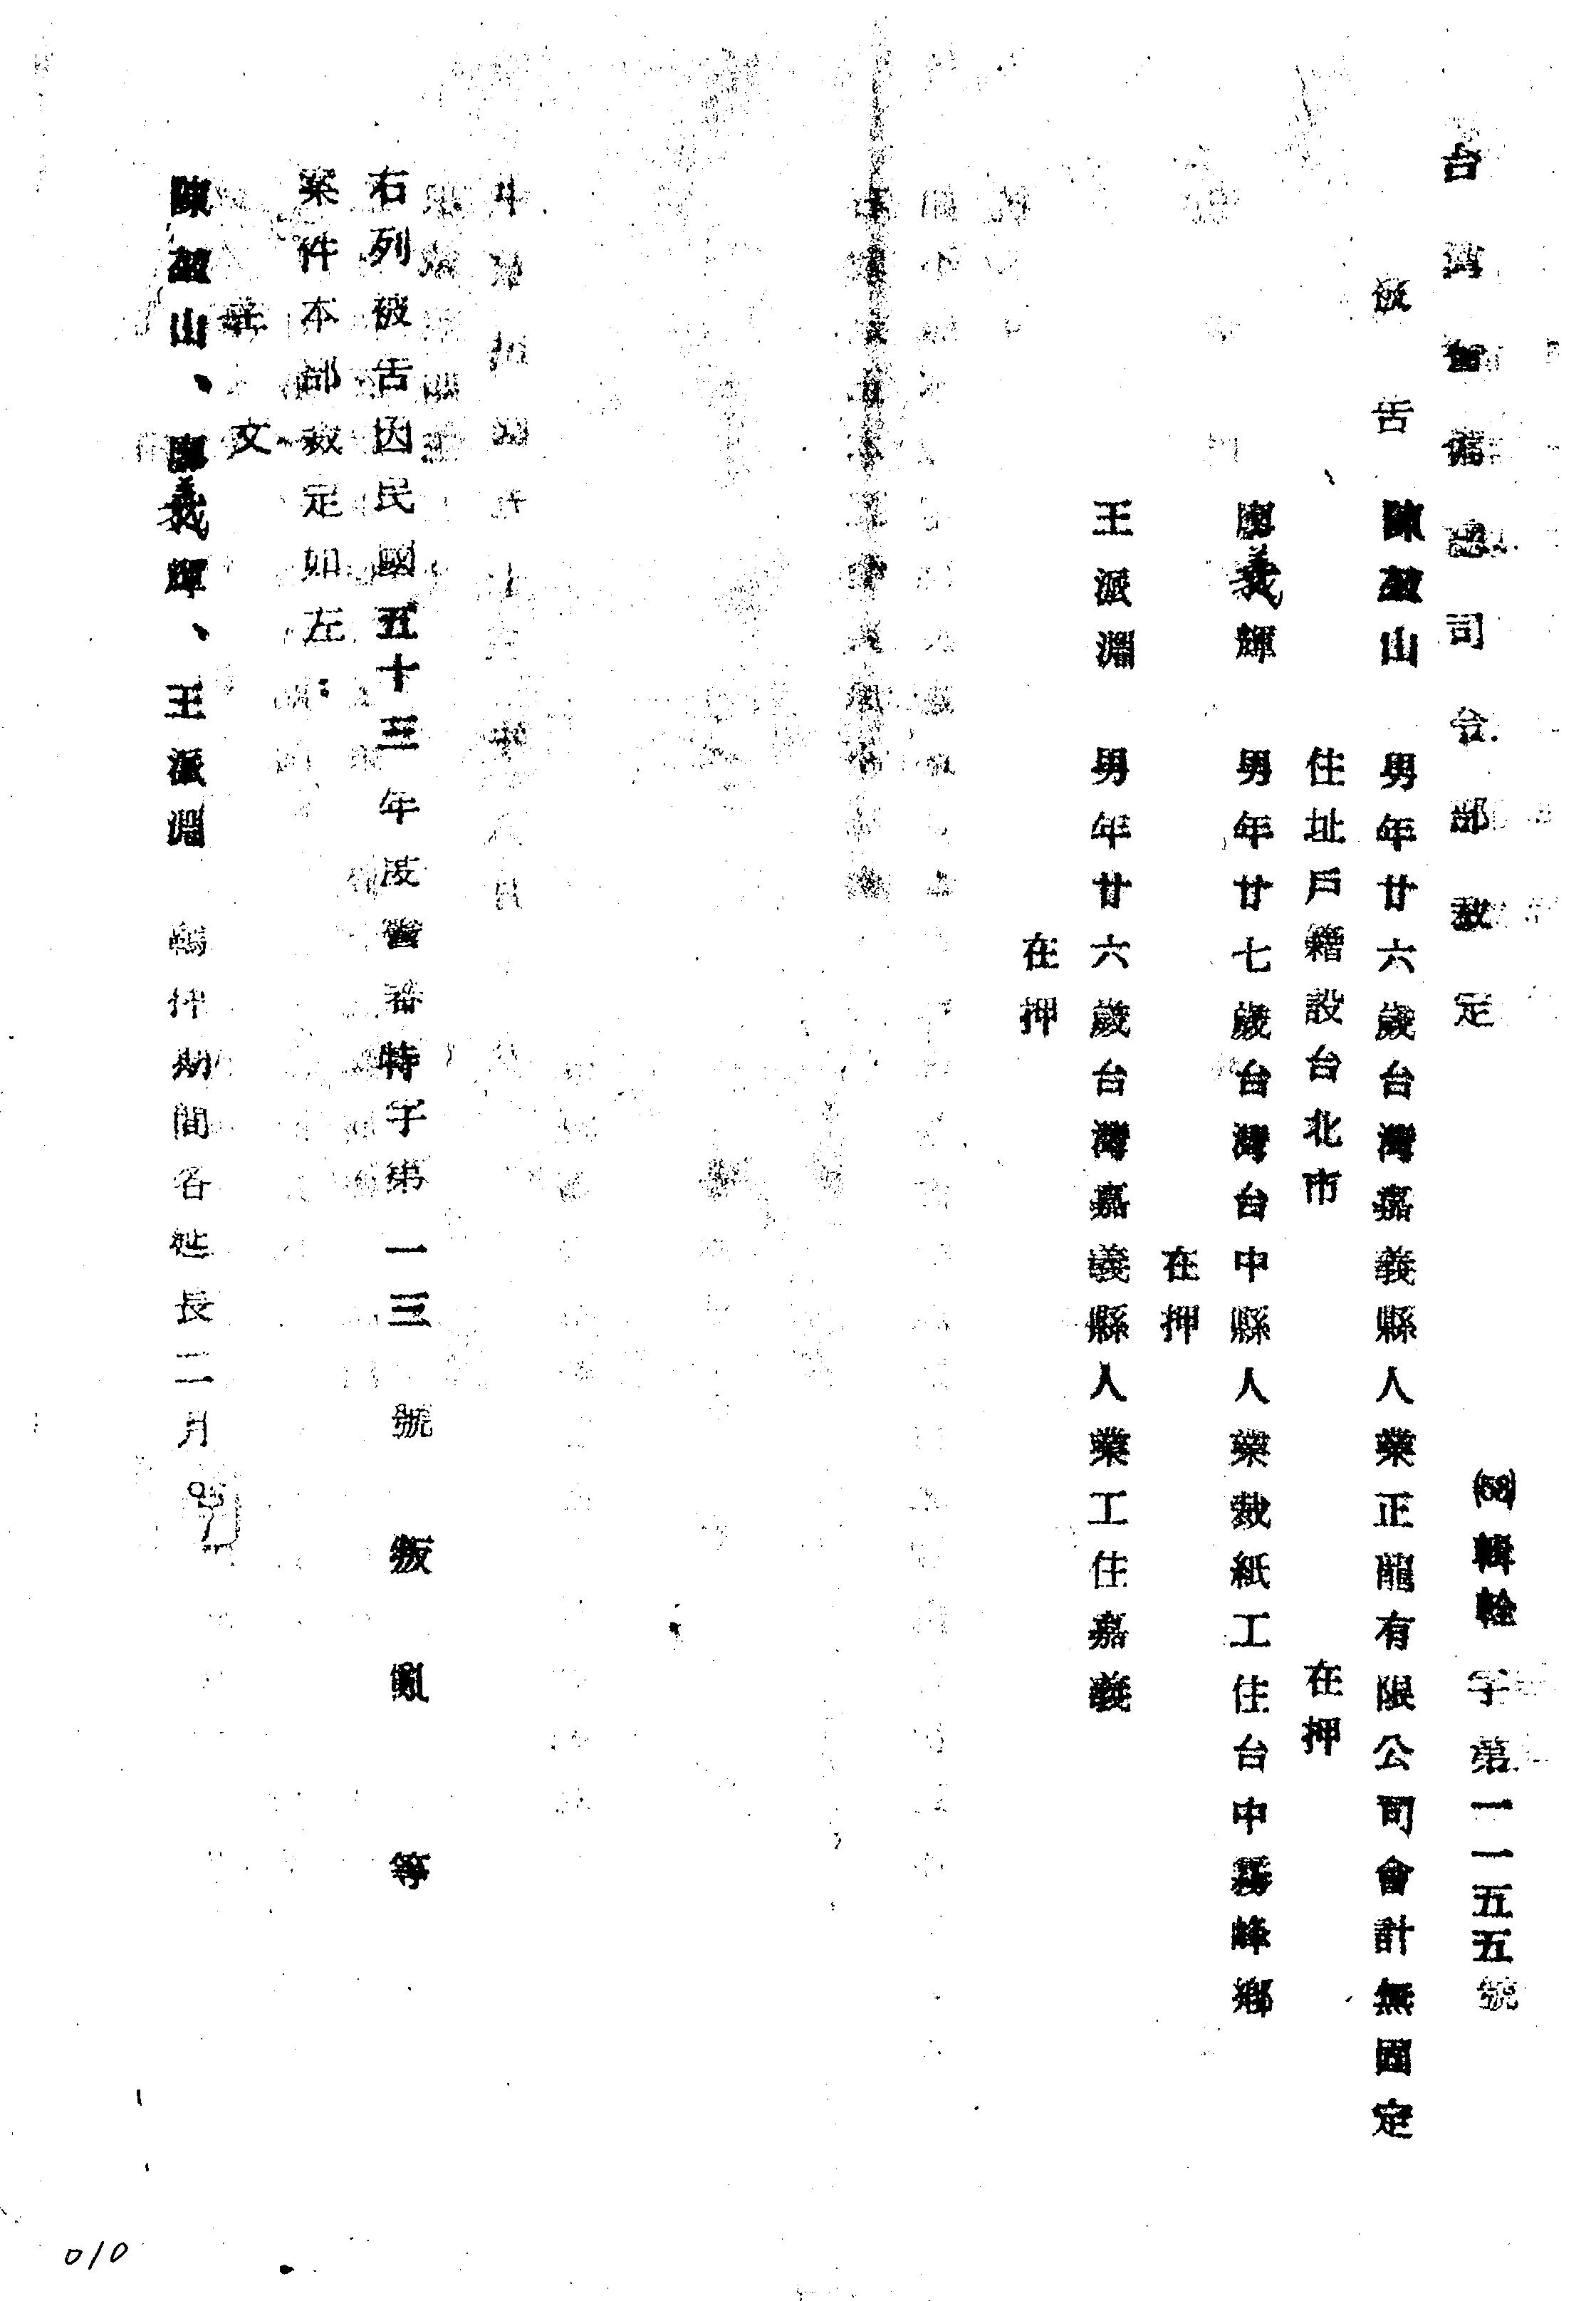 台灣警備總司令部裁定
(53)輯幹字第一一五五號
被告 陳盈山 男年廿六歲台灣嘉義縣人業正龍有限公司會計無固定
住址戶籍設台北市 在押
廖義輝 男年廿七歲台灣台中縣人業裁紙工住台中霧峰鄉
在押
王派淵 男年廿六歲台灣嘉義縣人業工住嘉義
在押
右列被告因民國五十三年度警審特字第一三號叛亂等
案件本部裁定如左:
主文
陳盈山、廖義輝、王派淵羈押期間各延長二月。
010